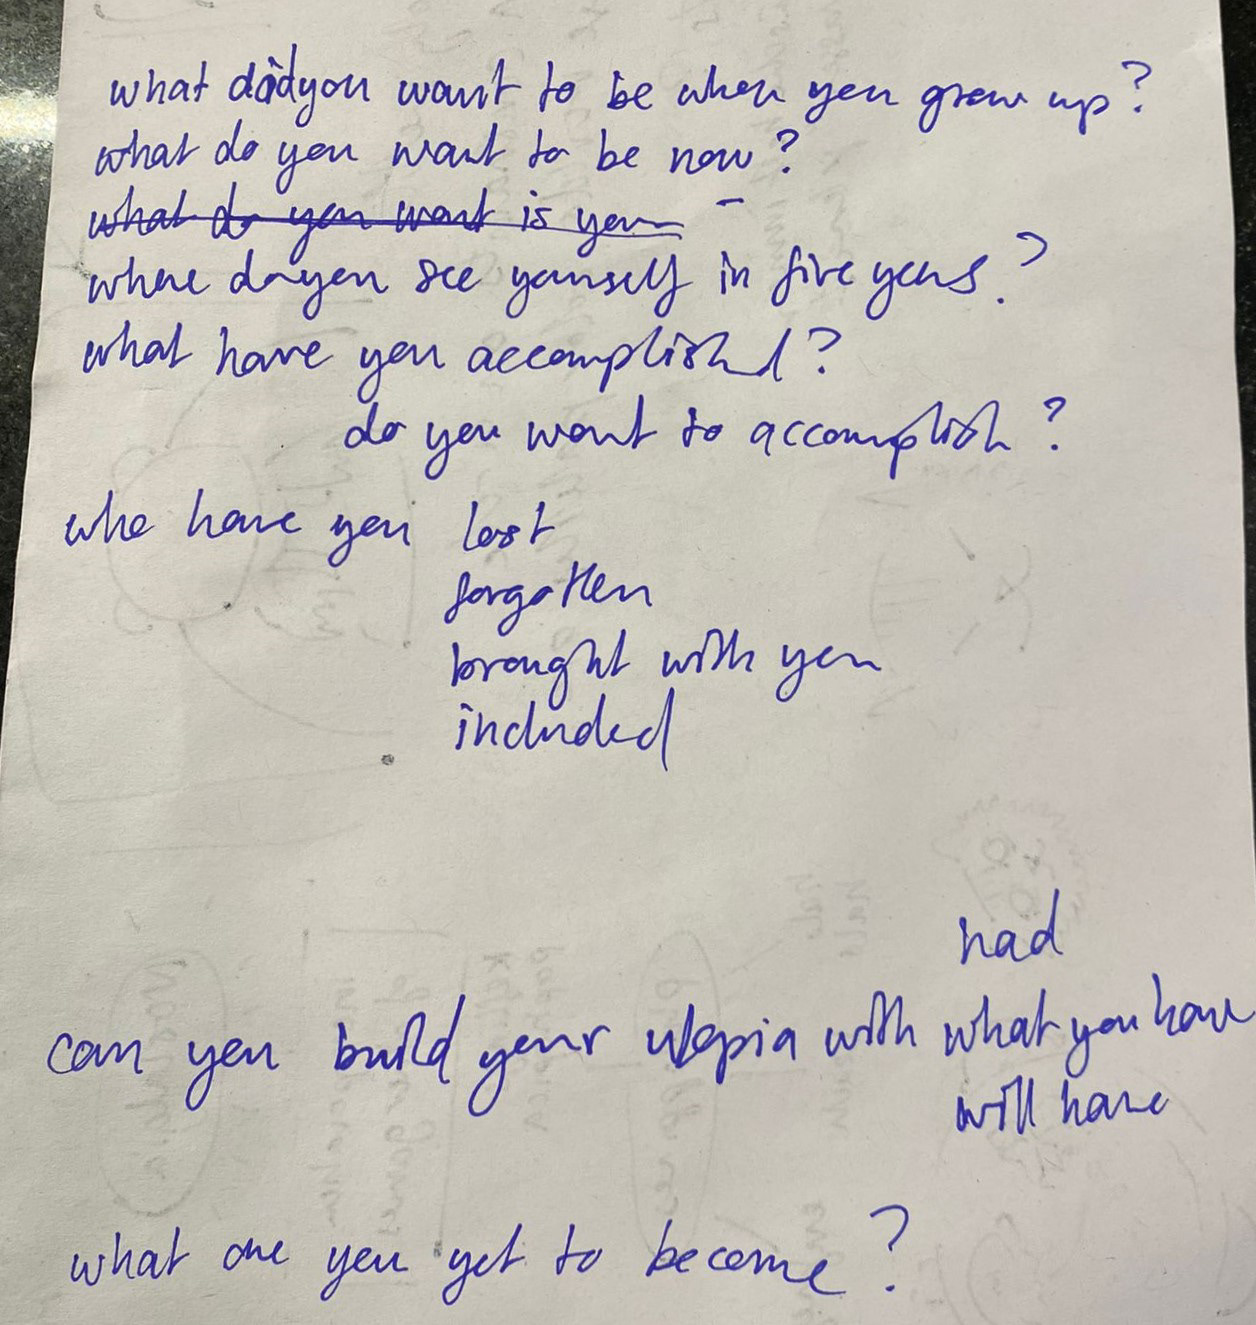 what did you want to be when you grew up?
what do you want to be now?
what do you want is you -
where do you see yourself in five years?
what have you accomplished?
do you want to accomplish?
who have you lost
forgotten
brought with you
included
had
can you build your utopia with what you have
will have
what are you yet to become?